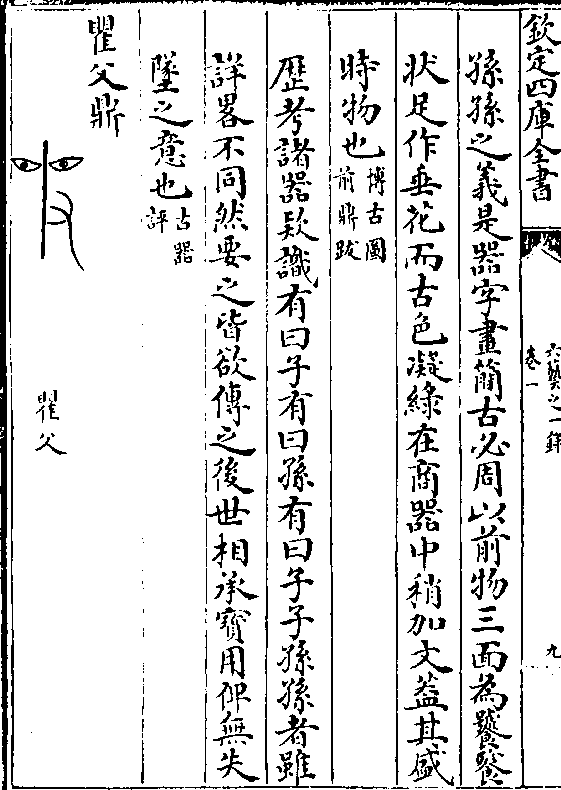 欽定四庫全書
六藝之一錄
卷一
九
孫孫之義是器字畫簡古必周以前物三面為饕餮
狀足作垂花而古色凝綠在商器中稍加文蓋其盛
時物也博古圖
前鼎跋
歴考諸器款識有曰子有曰孫有曰子子孫孫者雖
詳畧不同然要之皆欲傳之後世相承寳用俾無失
墜之意也古器
評
瞿父鼎
瞿父